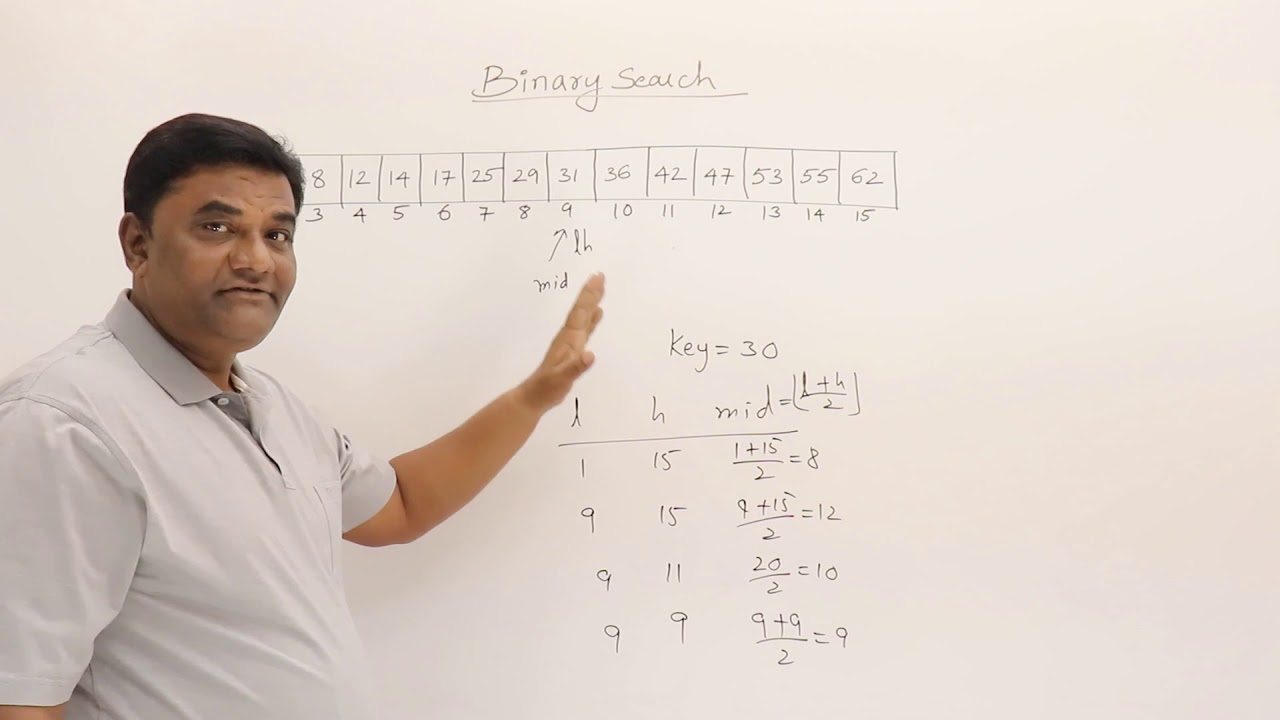 Binary Search
8 12 14 17 25 29 31 36 42 47 53 55 62
3 4 5 6 7 8 9 10 11 12 13 14 15
↗ lh
mid
Key = 30
l h mid = ⌊(l+h)/2⌋
1 15 (1+15)/2 = 8
9 15 (9+15)/2 = 12
9 11 20/2 = 10
9 9 (9+9)/2 = 9